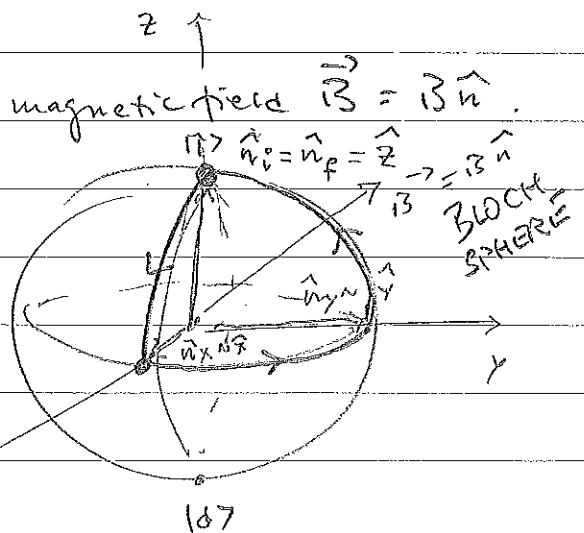 z
magnetic field B⃗ = B n̂.
|↑> n̂ᵢ = n̂_f = ẑ
B⃗ = B n̂
BLOCH
SPHERE
n̂y ~ ŷ
n̂x ~ x̂
y
|↓>